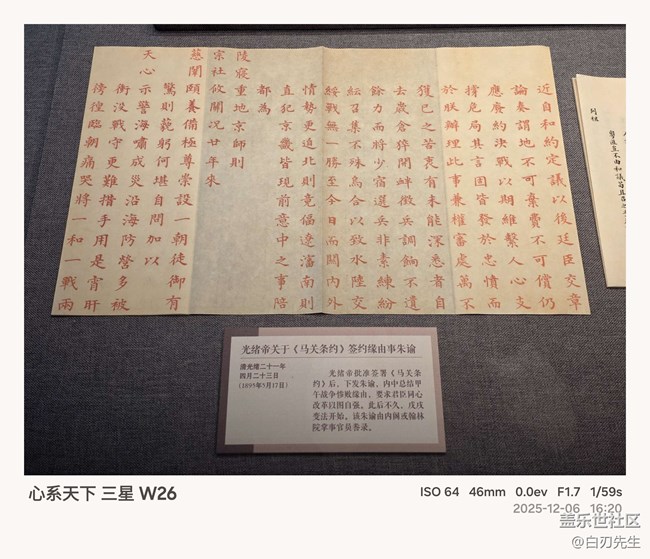 近自和約定議以後廷臣交章
論奏謂地不可棄費不可償仍
應廢約決戰以期維繫人心支
撐危局其言固皆發於忠憤而
於朕辦理此事兼權審處萬不
獲已之苦衷有未能深悉者自
去歲倉猝開衅徵兵調餉不遺
餘力而將少宿選兵非素練紛
紜召集不殊烏合以致水陸交
綏戰無一勝至今日而關內外
情勢更迫北則竟偪遼瀋南則
直犯京畿皆現前意中之事陪
都為
陵寢重地京師則
宗社攸關况廿年來
慈闈頤養備極尊崇設一朝徒御有
驚則藐躬何堪自問加以
天心示警海嘯成災沿海防營多被
衝沒戰守更難措手用是宵旰
徬徨臨朝痛哭將一和一戰兩
光绪帝关于《马关条约》签约缘由事朱谕
清光绪二十一年
四月二十三日
（1895年5月17日）
光绪帝批准签署《马关条
约》后，下发朱谕，内中总结甲
午战争惨败缘由，要求君臣同心
改革以图自强。此后不久，戊戌
变法开始。该朱谕由内阁或翰林
院掌事官员誊录。
心系天下 三星 W26
ISO 64 46mm 0.0ev F1.7 1/59s
2025-12-06 16:20
盖乐世社区
@白刃先生